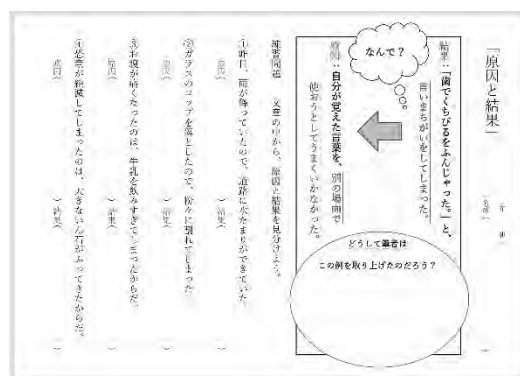 「原因と結果」
年 組
名前（ ）
結果：「歯でくちびるをふんじゃった。」と、
言いまちがいをしてしまった。
なんで？
原因：自分が覚えた言葉を、別の場面で
使おうとしてうまくいかなかった。
どうして筆者は
この例を取り上げたのだろう？
練習問題 文章の中から、原因と結果を見分けよう。
①昨日、雨が降っていたので、道路に水たまりができていた。
原因（ ）結果（ ）
②ガラスのコップを落としたので、粉々に割れてしまった。
原因（ ）結果（ ）
③お腹が痛くなったのは、牛乳を飲みすぎてしまったからだ。
原因（ ）結果（ ）
④恐竜が絶滅してしまったのは、大きないん石がふってきたからだ。
原因（ ）結果（ ）